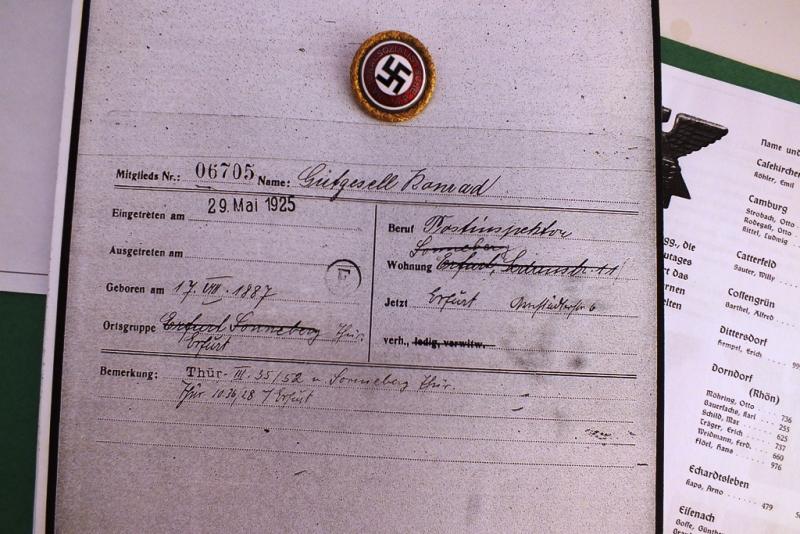 Mitglieds Nr.: 06705 Name: Gütgesell Konrad
Eingetreten am 29. Mai 1925
Ausgetreten am
Geboren am 17. VIII. 1887
Ortsgruppe Erfurt Sonneberg Thür.
Erfurt
Beruf Postinspektor
Sonneberg
Wohnung Erfurt,
Jetzt Erfurt
verh., ledig, verwitw.
Bemerkung: Thür. III. 35/52 u. Sonneberg Thür.
Thür 10.36/28 / Erfurt
Name und
Cafekirchen
Köhler, Emil
Camburg
Strobach, Otto
Rodegast, Otto
Bittel, Ludwig
Catterfeld
Sauter, Willy
Cossengrün
Barthel, Alfred
Dittersdorf
Hempel, Erich
Dorndorf
(Rhön)
Möhring, Otto 736
Bauersachs, Karl 255
Schild, Max 625
Träger, Erich 737
Weidmann, Ferd. 660
Flöel, Hans 976
Eckardtsleben
Raps, Arno 479
Eisenach
Bosse, Günther
gg., die
utages
rt das
rnen
elten